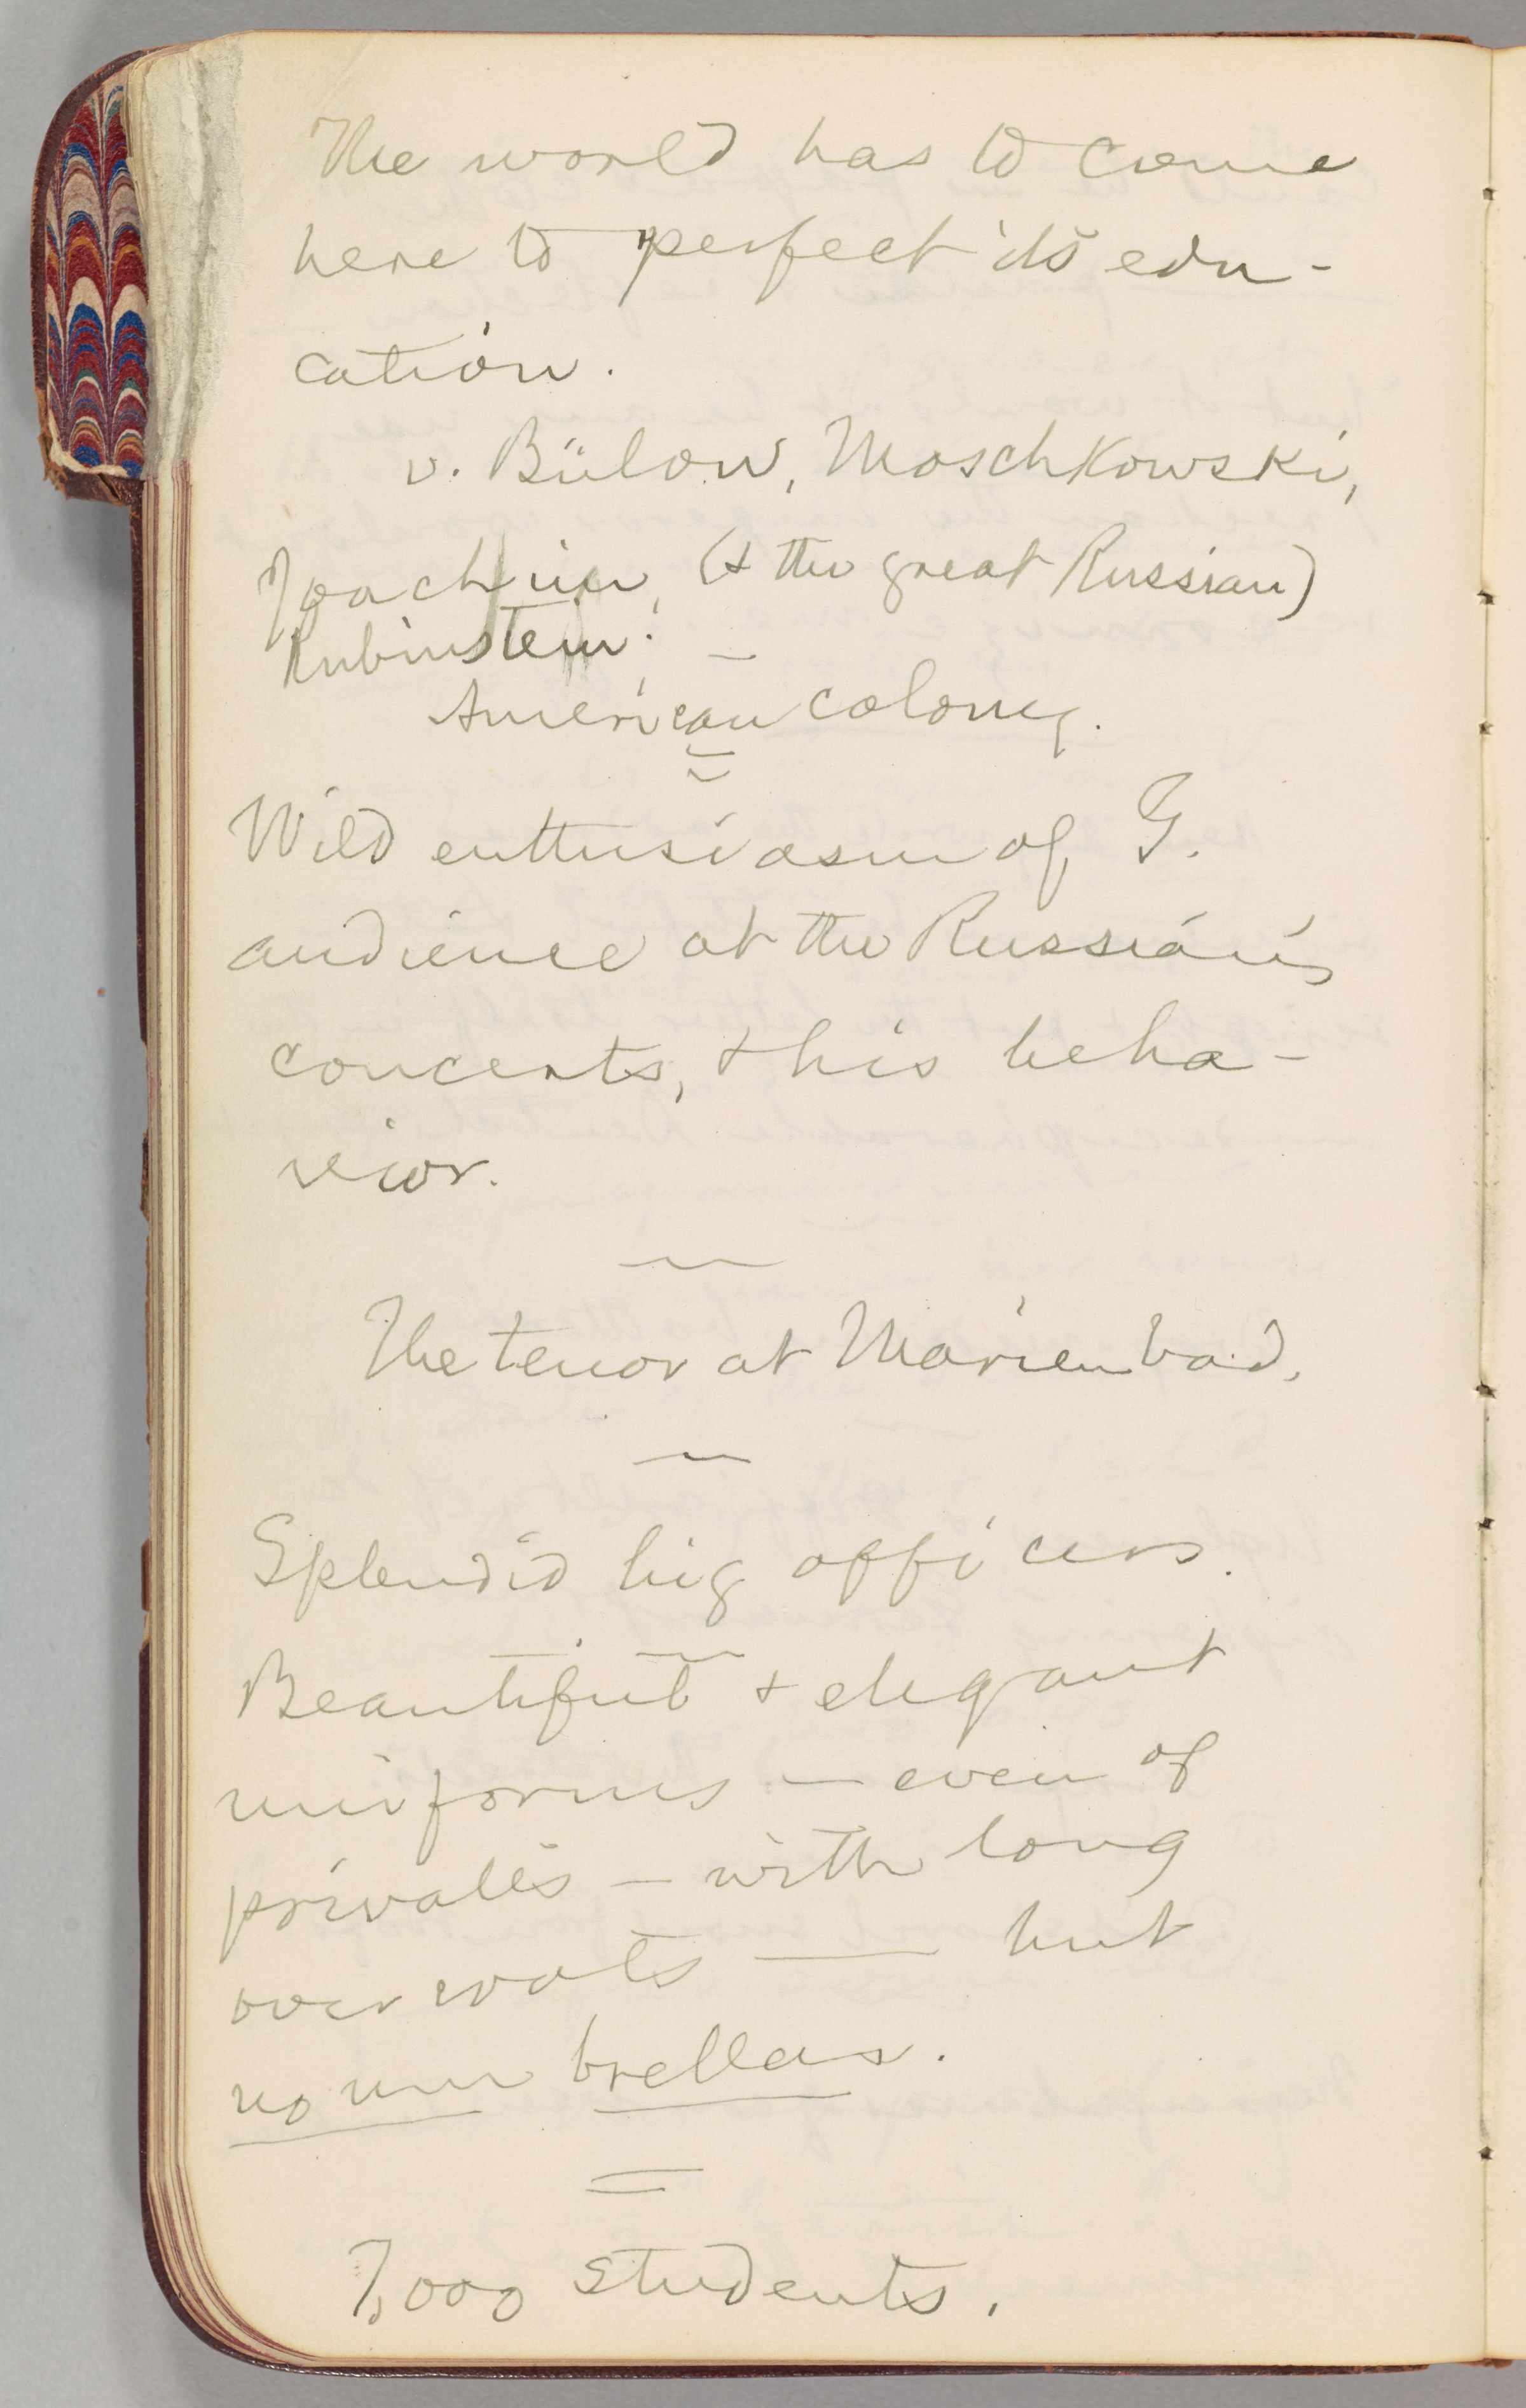 The world has to come
here to perfect its edu-
cation.
v. Bülow, Moschkowski,
Joachim, (& the great Russian)
Rubinstein.
American colony.
Wild enthusiasm of G.
audience at the Russian's
concerts, & his beha-
vior.
The tenor at Marienbad.
Splendid big officers.
Beautiful & elegant
uniforms — even of
privates — with long
overcoats — but
no umbrellas.
7,000 students.